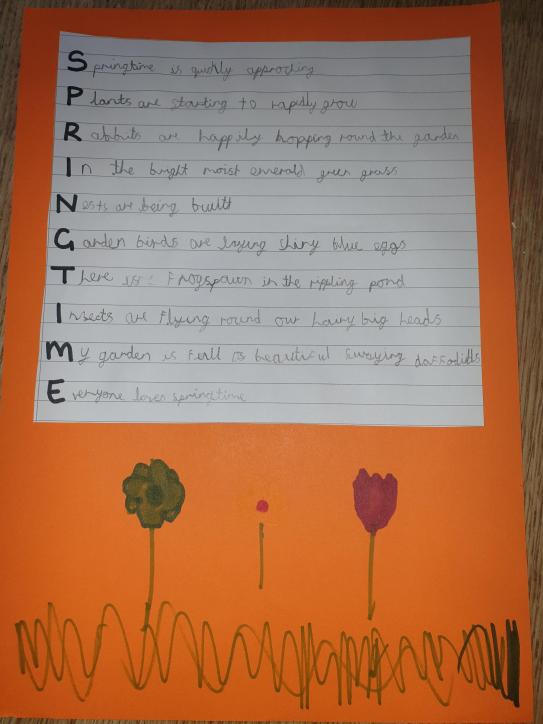 Springtime is quickly approching
Plants are starting to rapidly grow
Rabbits are happily hopping round the garden
In the bright moist emerald green grass
Nests are being built
Garden birds are laying shiny blue eggs
There is frogspawn in the rippling pond
Insects are flying round our hairy big heads
My garden is full of beautiful swaying daffodills
Everyone loves springtime